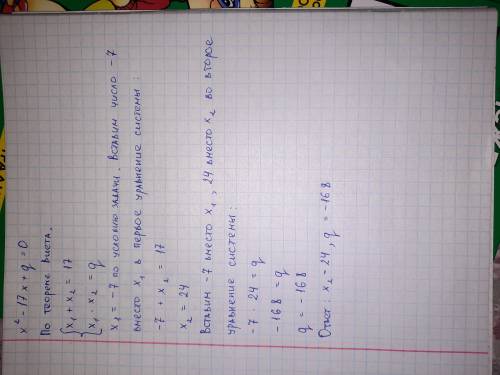 x² - 17x + q = 0
По теореме Виета.
{ x₁ + x₂ = 17
{ x₁ · x₂ = q
x₁ = -7 по условию задачи. Вставим число -7
вместо x₁ в первое уравнение системы:
-7 + x₂ = 17
x₂ = 24
Вставим -7 вместо x₁, 24 вместо x₂ во второе
уравнение системы:
-7 · 24 = q
-168 = q
q = -168
Ответ: x₂ - 24, q = -168